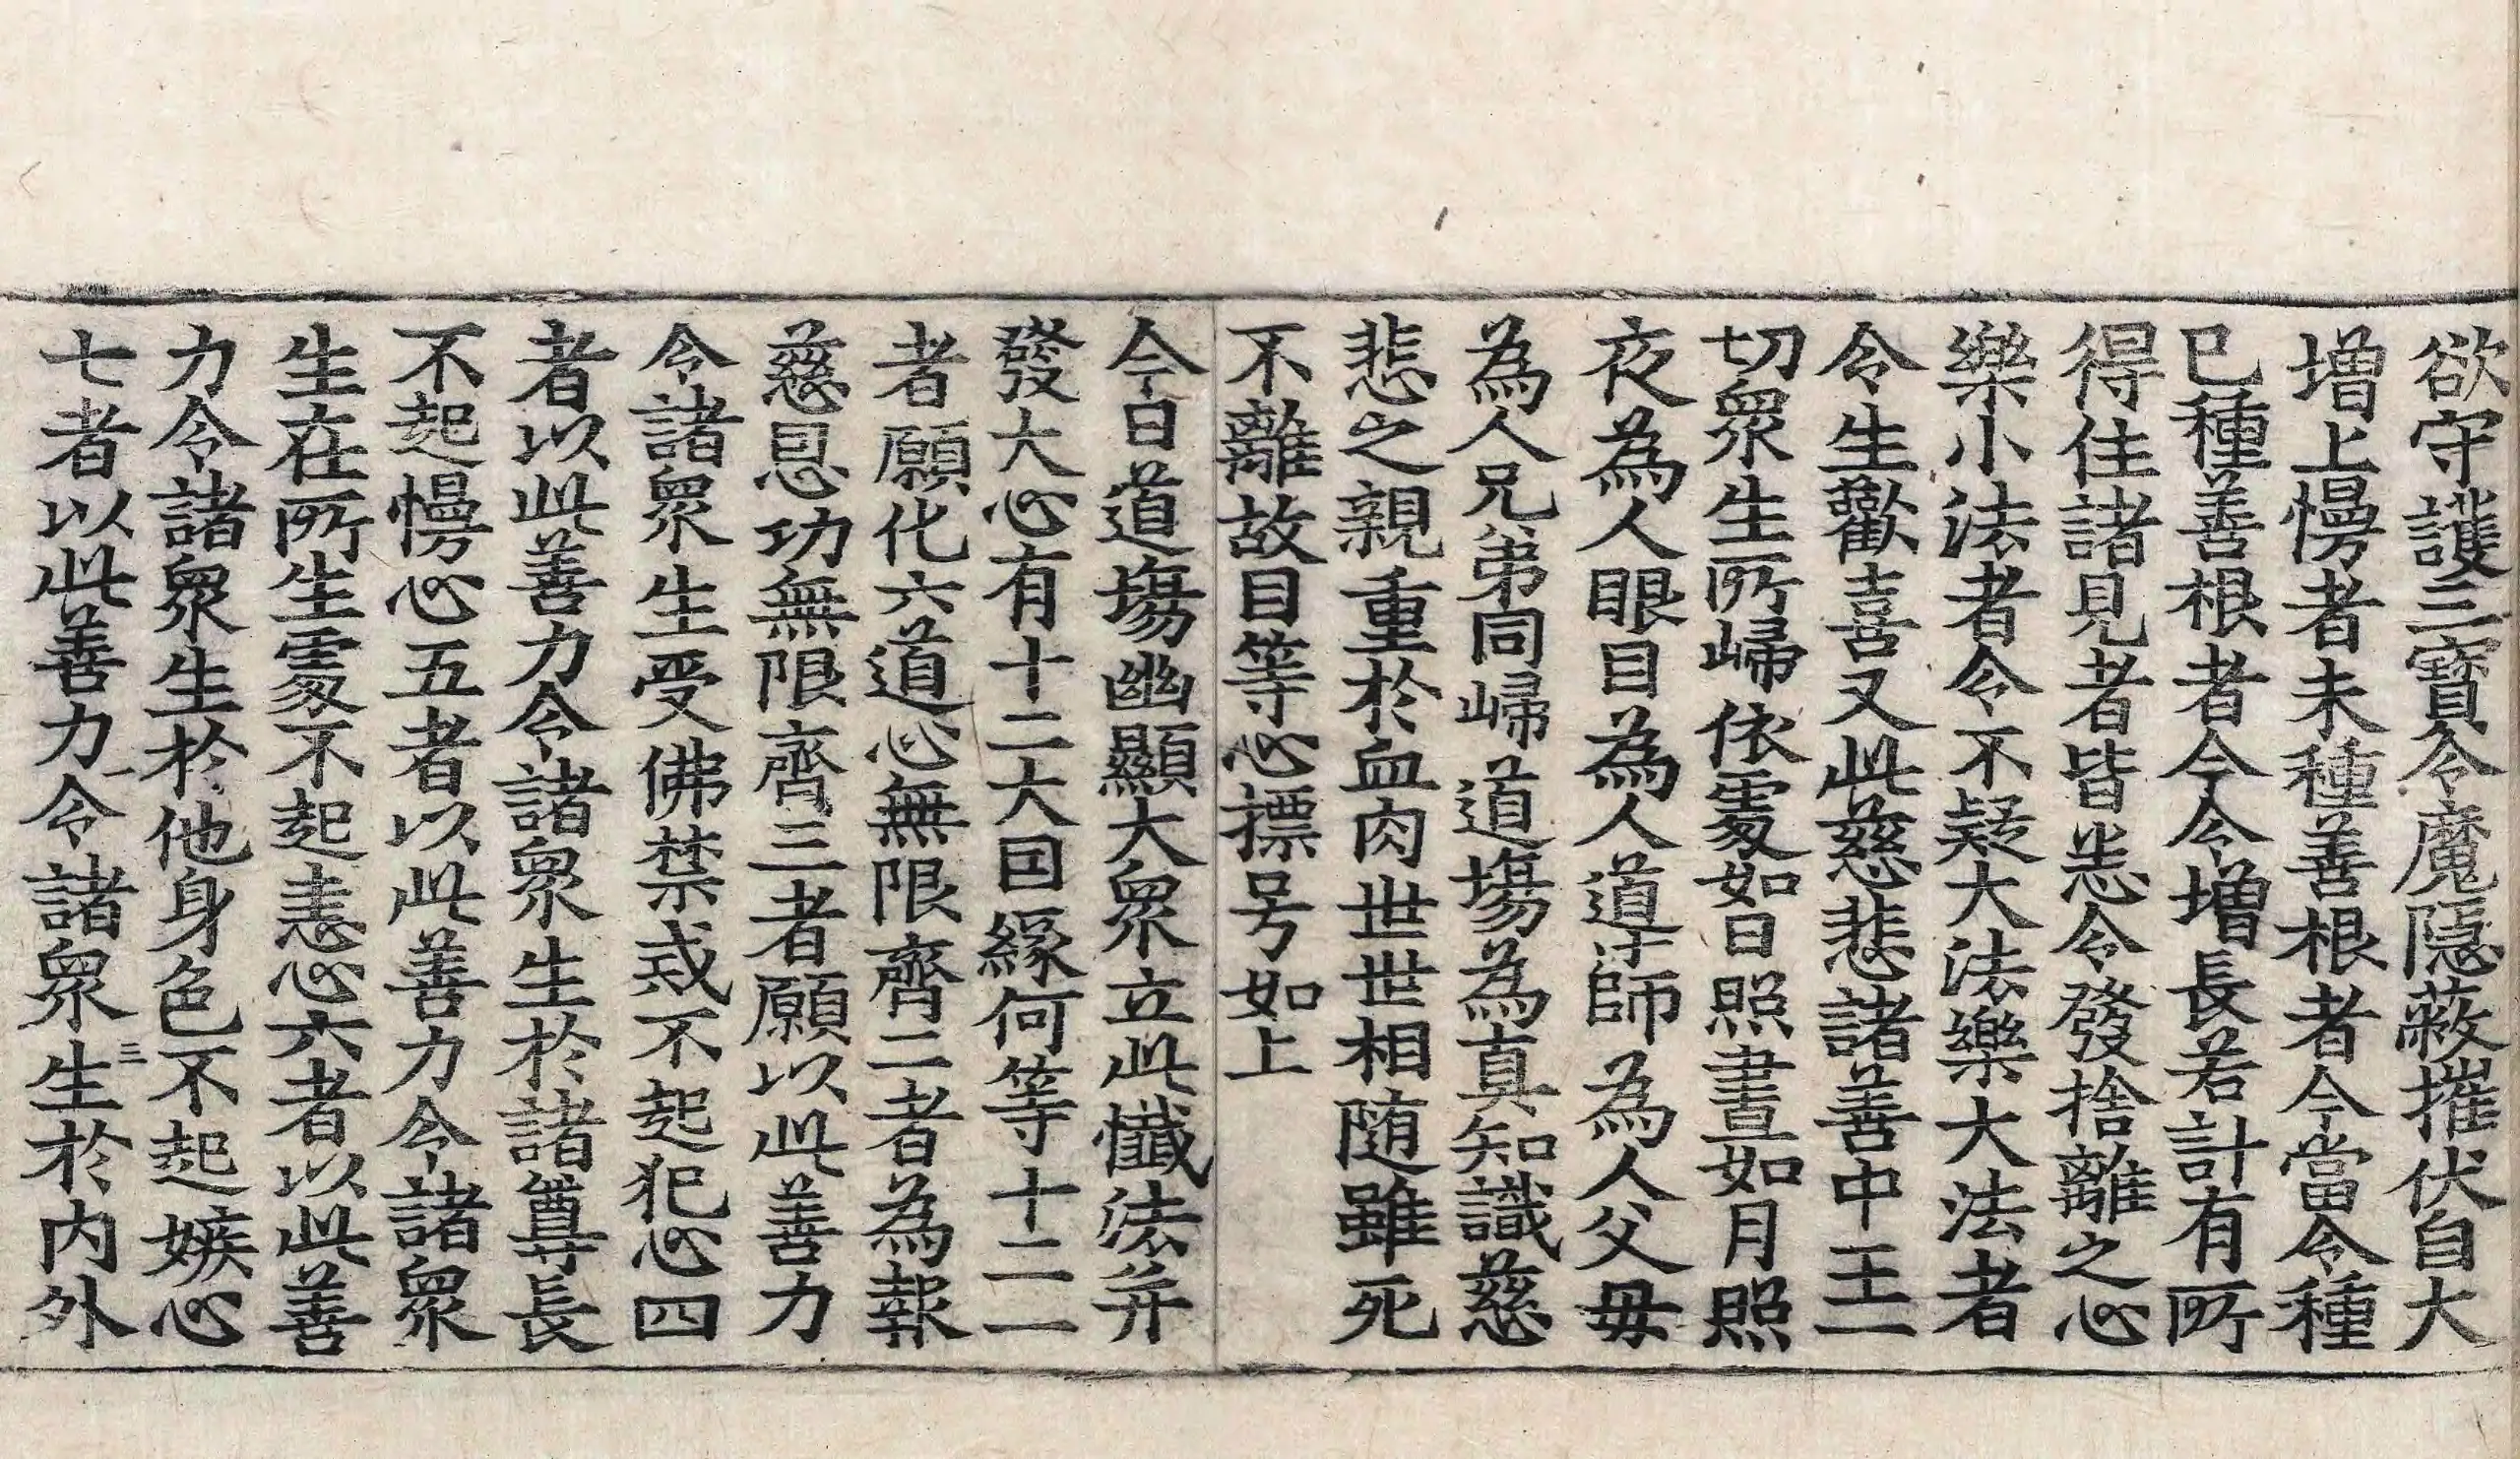 欲守護三寳令魔隱蔽摧伏自大
増上慢者未種善根者今當令種
已種善根者今令増長若計有所
得住諸見者皆悉令發捨離之心
樂小法者令不疑大法樂大法者
令生歡喜又此慈悲諸善中王一
切衆生所歸依處如日照晝如月照
夜為人眼目為人導師為人父母
為人兄弟同歸道場為真知識慈
悲之親重於血肉世世相随雖死
不離故目等心摽号如上
今日道場幽顯大衆立此懺法并
發大心有十二大因縁何等十二一
者願化六道心無限齊二者為報
慈恩功無限齊三者願以此善力
令諸衆生受佛禁戒不起犯心四
者以此善力令諸衆生於諸尊長
不起慢心五者以此善力令諸衆
生在所生處不起恚心六者以此善
力令諸衆生於他身色不起嫉心
七者以此善力令諸衆生於内外
一
三